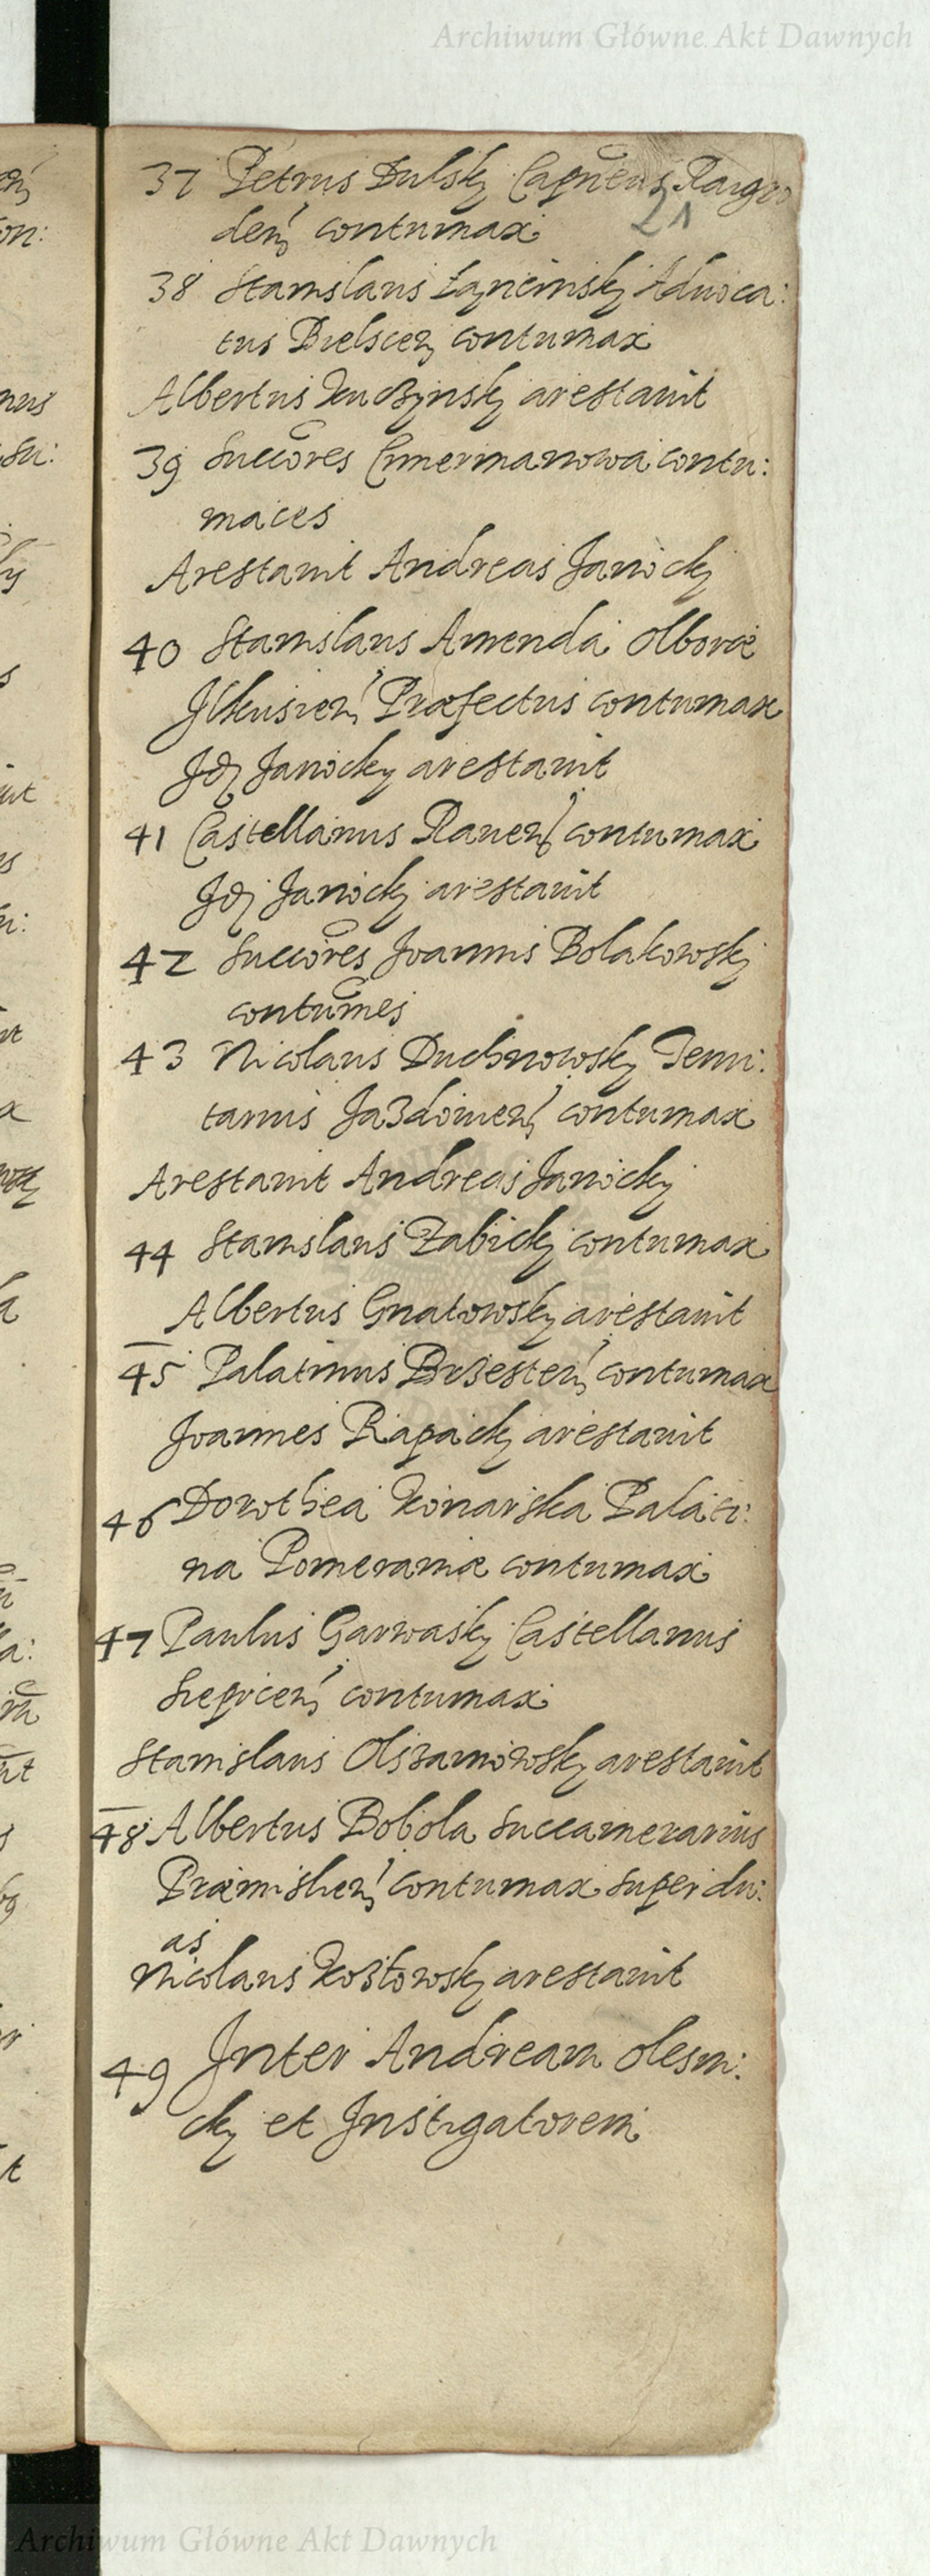 Archiwum Główne Akt Dawnych
37 Petrus Dulsky Capneus Raigro
21
den contumax
38 Stanislaus Łącinsky Aduoca:
tus Bielscen contumax
Albertus Kuczynsky arestauit
39 Succores Cimermanowa contu:
maces
Arestauit Andreas Janicky
40 Stanislaus Amenda Olboræ
Ilkusien Præfectus contumax
Idẽ Janicky arestauit
41 Castellanus Rauen contumax
Idẽ Janicky arestauit
42 Succores Joannis Bolakowsky
contumes
43 Nicolaus Duchnowsky Tenu:
tarius Jazdowien contumax
Arestauit Andreas Janicky
44 Stanislaus Zabicky contumax
Albertus Gnatowsky arestauit
45 Palatinus Brzesten contumax
Joannes Rapacky arestauit
46 Dorothea Konarska Palati:
na Pomeraniæ contumax
47 Paulus Garwasky Castellanus
Sieprcen contumax
Stanislaus Olszamowsky arestauit
48 Albertus Bobola Succamerarius
Præmislien contumax super du:
as
Nicolaus Kozłowsky arestauit
49 Inter Andream Olesni:
cky et Instigatorem
Archiwum Główne Akt Dawnych